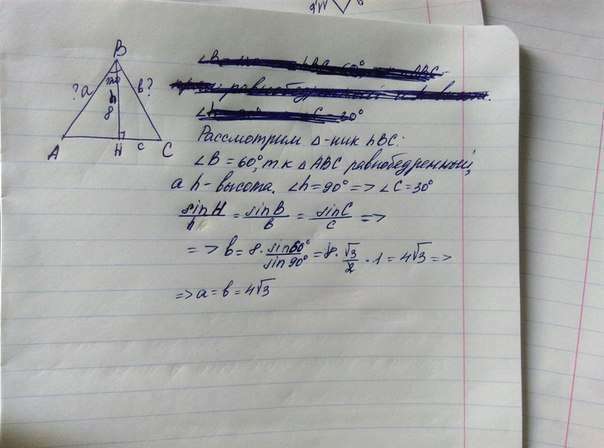 B
?a
120
h
8
b?
A
H
c
C
Рассмотрим Δ-ник hBC:
∠B = 60°, т.к. Δ ABC равнобедренный,
а h-высота. ∠h = 90° => ∠C = 30°
sinH/h = sinB/b = sinC/c =>
=> b = 8 · sin60°/sin90° = 8 · √3/2 · 1 = 4√3 =>
=> a = b = 4√3